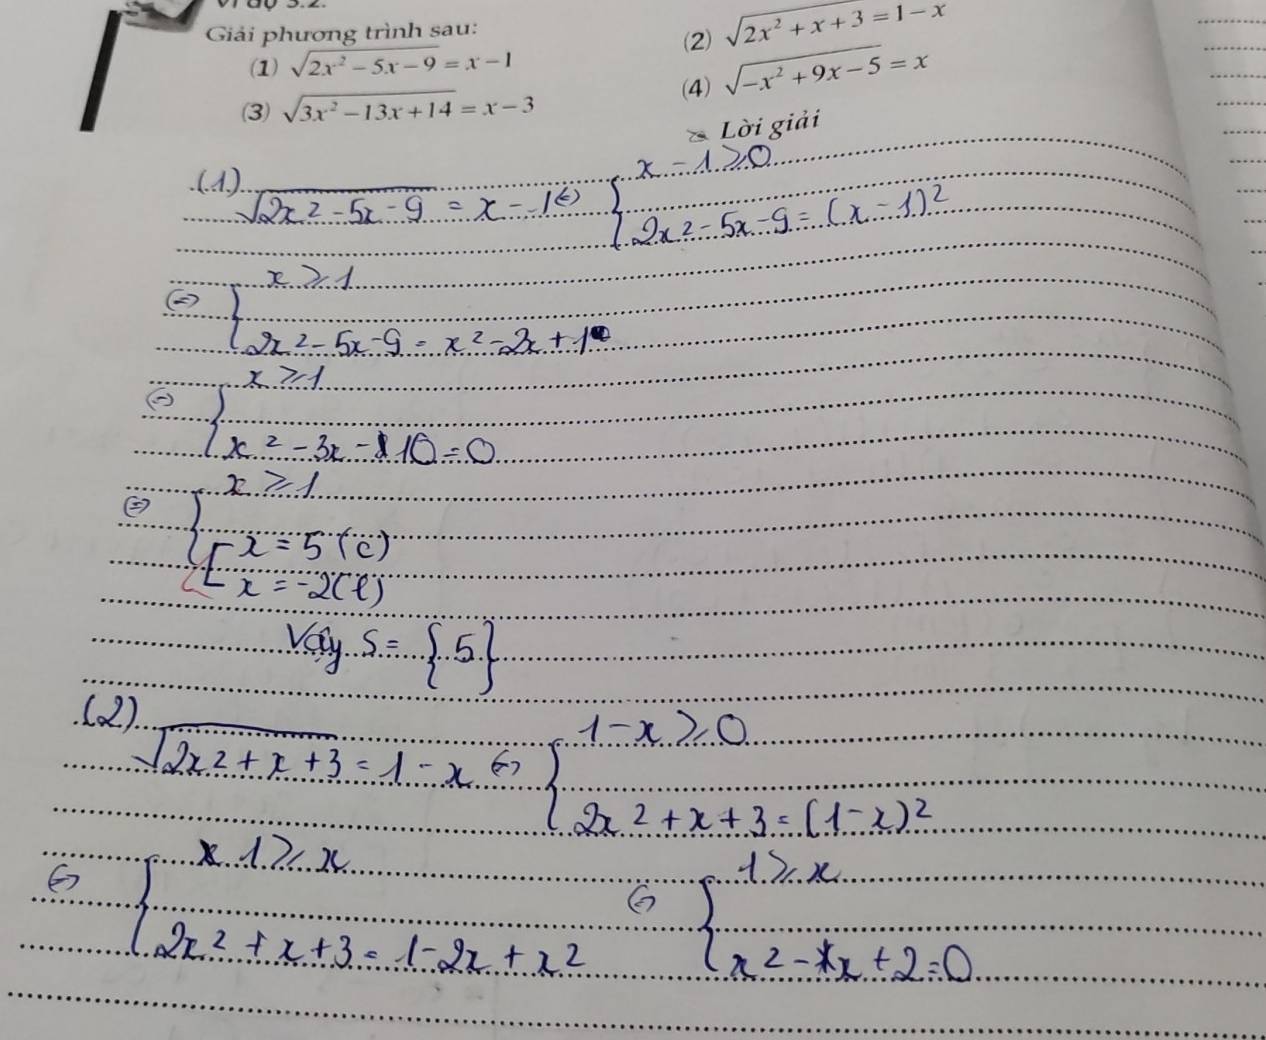 Giải phương trình sau:
(1) √(2x² − 5x − 9) = x − 1
(2) √(2x² + x + 3) = 1 − x
(3) √(3x² − 13x + 14) = x − 3
(4) √(−x² + 9x − 5) = x
Lời giải
(1) √(2x² − 5x − 9) = x − 1 ⇔ { x − 1 ≥ 0
2x² − 5x − 9 = (x − 1)²
⇔ { x ≥ 1
2x² − 5x − 9 = x² − 2x + 1
⇔ { x ≥ 1
x² − 3x − 10 = 0
⇔ { x ≥ 1
[ x = 5 (c)
x = −2 (l)
Vậy S = {5}
(2) √(2x² + x + 3) = 1 − x ⇔ { 1 − x ≥ 0
2x² + x + 3 = (1 − x)²
⇔ { 1 ≥ x
2x² + x + 3 = 1 − 2x + x²
⇔ { 1 ≥ x
x² − x + 2 = 0